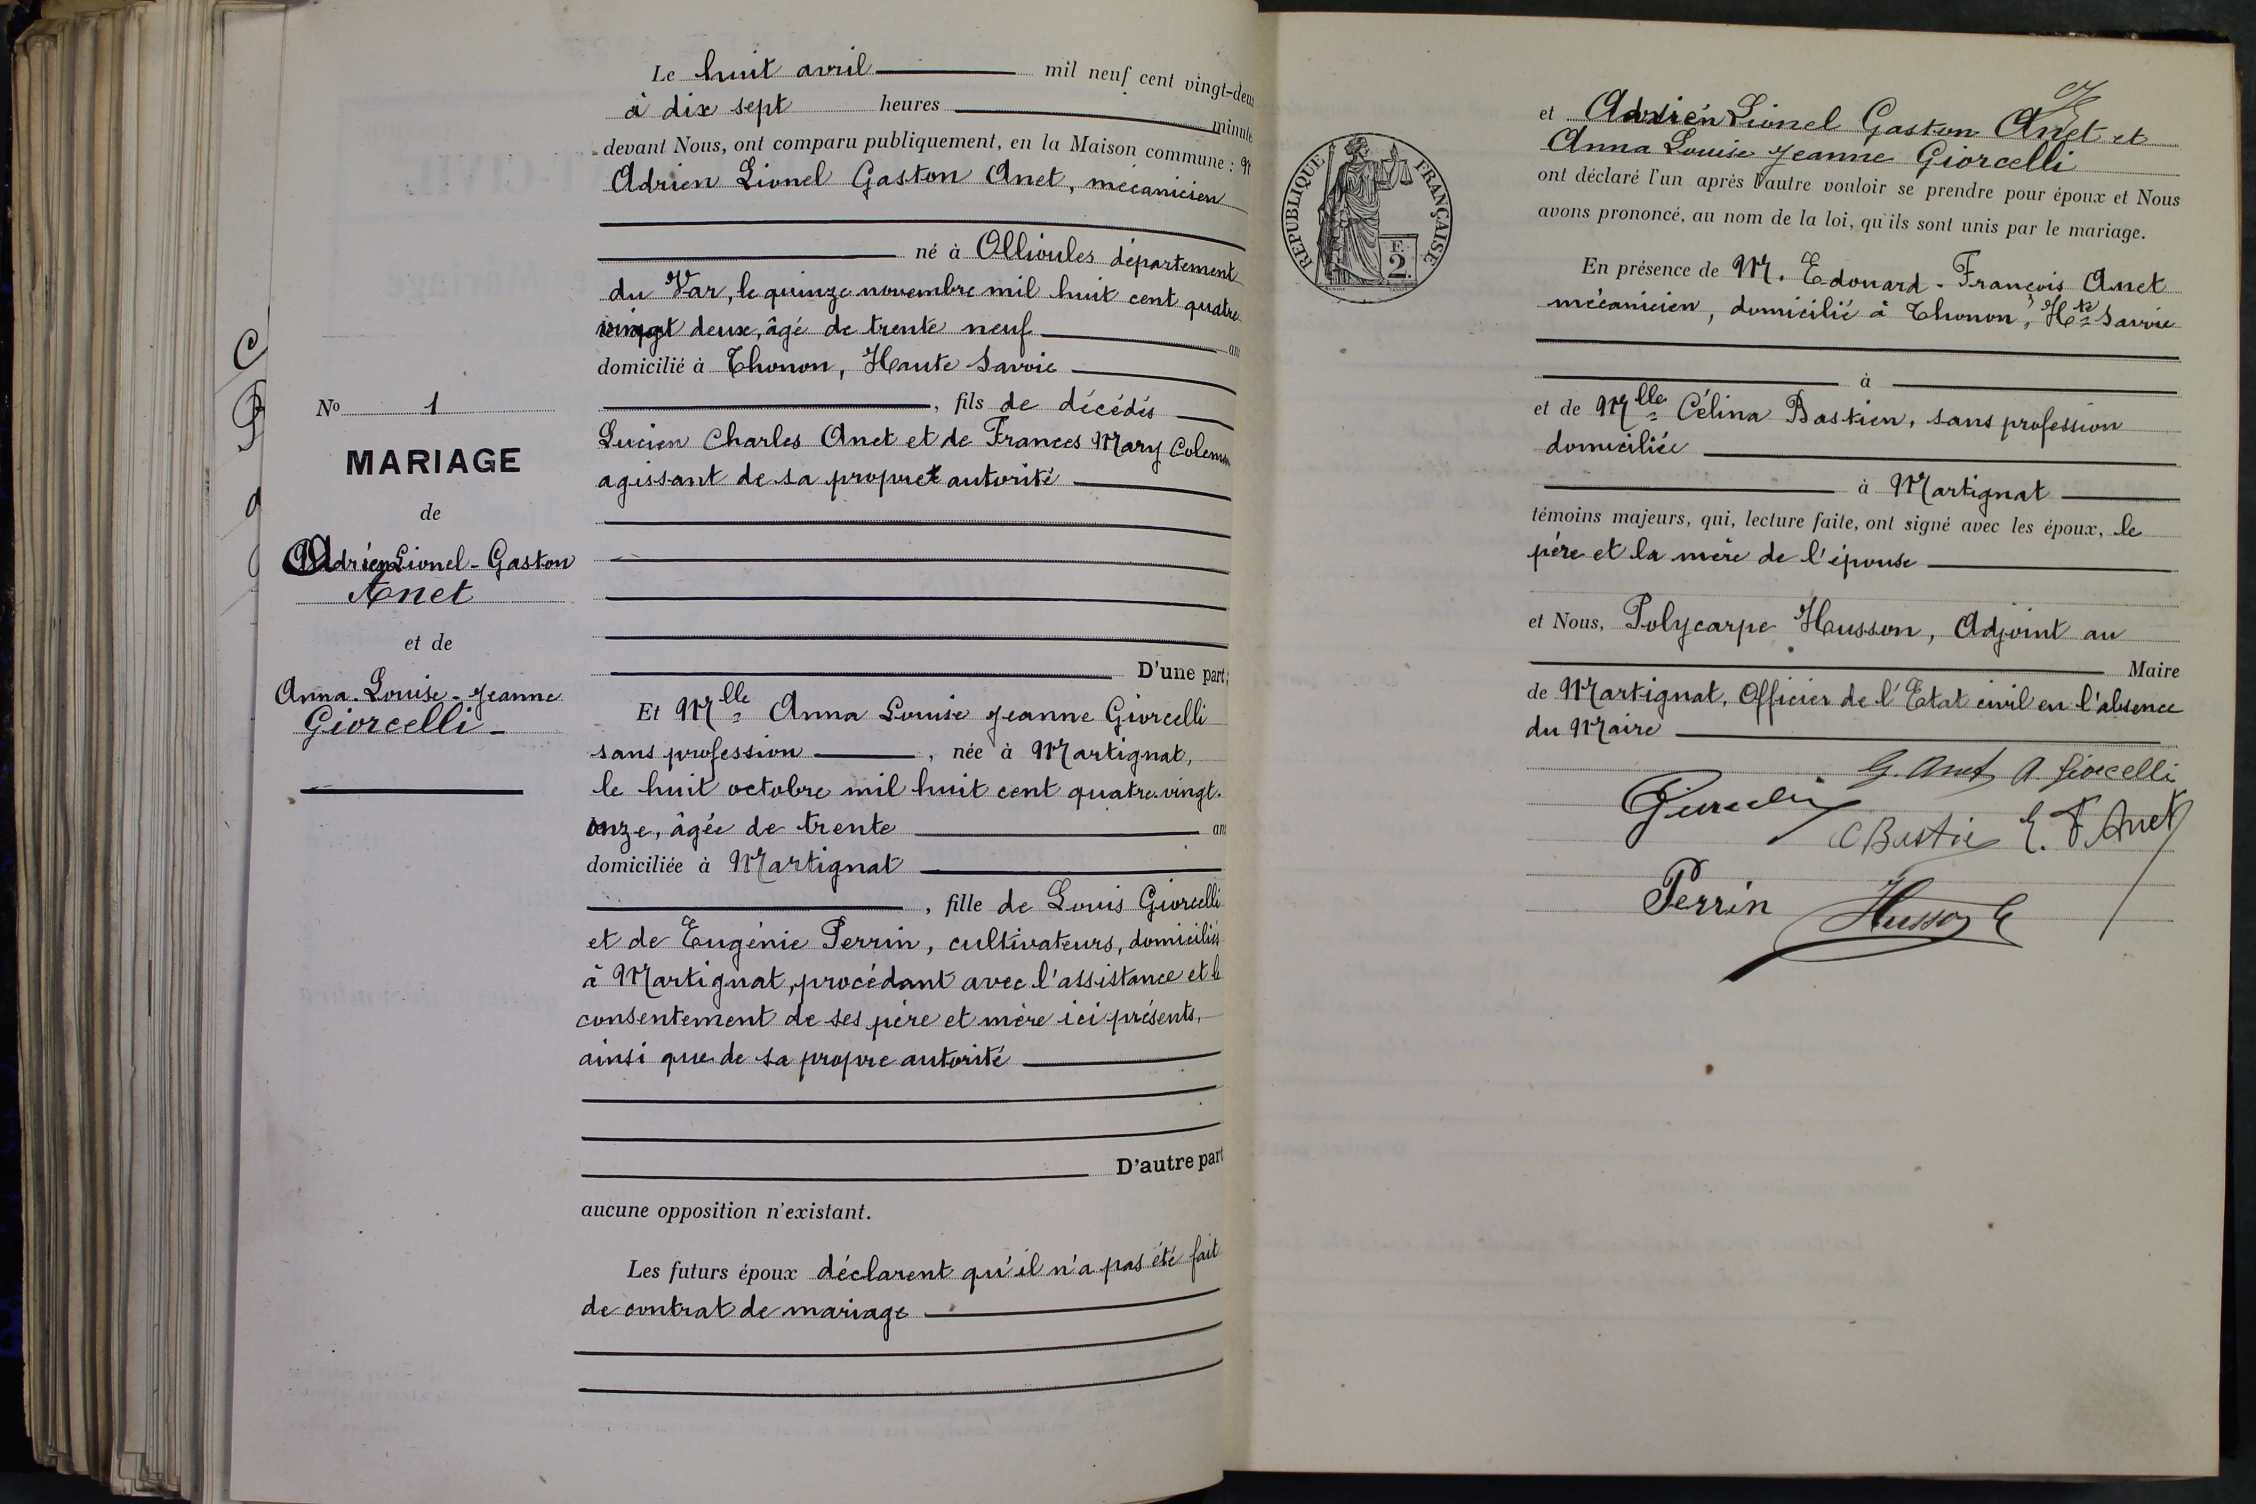 Le huit avril mil neuf cent vingt-deux
à dix sept heures minute
devant Nous, ont comparu publiquement, en la Maison commune : M
Adrien Lionel Gaston Anet, mecanicien
né à Ollioules département
du Var, le quinze novembre mil huit cent quatre
vingt deux, âgé de trente neuf an
domicilié à Thonon, Haute Savoie
, fils de décédés
Lucien Charles Anet et de Frances Mary Coleman
agissant de sa propre autorité
D'une part;
Et Mlle Anna Louise Jeanne Giorcelli
sans profession , née à Martignat,
le huit octobre mil huit cent quatre-vingt-
onze, âgée de trente an
domiciliée à Martignat
, fille de Louis Giorcelli
et de Eugénie Perrin, cultivateurs, domiciliés
à Martignat, procédant avec l'assistance et le
consentement de ses père et mère ici présents,
ainsi que de sa propre autorité
D'autre part
aucune opposition n'existant.
Les futurs époux déclarent qu'il n'a pas été fait
de contrat de mariage
No 1
MARIAGE
de
Adrien Lionel-Gaston
Anet
et de
Anna-Louise-Jeanne
Giorcelli
REPUBLIQUE FRANÇAISE
F.
2.
et Adrien Lionel Gaston Anet et
Anna Louise Jeanne Giorcelli
ont déclaré l'un après l'autre vouloir se prendre pour époux et Nous
avons prononcé, au nom de la loi, qu'ils sont unis par le mariage.
En présence de M. Edouard-François Anet
mécanicien, domicilié à Thonon, Hte Savoie
à
et de Mlle Célina Bastien, sans profession
domiciliée
à Martignat
témoins majeurs, qui, lecture faite, ont signé avec les époux, le
père et la mère de l'épouse
et Nous, Polycarpe Husson, Adjoint au
Maire
de Martignat, Officier de l'Etat civil en l'absence
du Maire
G. Anet A. Giorcelli
Giorcelli
C Bastien E. F. Anet
Perrin
Husson